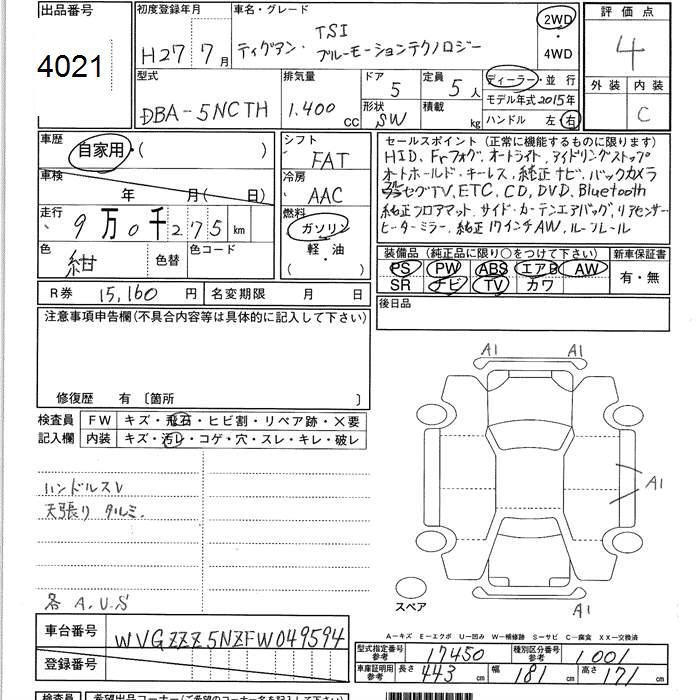 出品番号
4021
初度登録年月
H27 7月
車名・グレード
ティグアン・ TSI
ブルーモーションテクノロジー
2WD
・
4WD
評価点
4
外装 内装
C
型式
DBA-5NCTH
排気量
1.400 cc
ドア
5
定員
5人
形状
SW
積載
kg
ディーラー・並行
モデル年式2015年
ハンドル 左 右
車歴
自家用・( )
車検
年 月( 日)
走行
9万0千275km
色
紺
色替
色コード
シフト
FAT
冷房
AAC
燃料
ガソリン
軽・油
( )
セールスポイント (正常に機能するものに限ります)
HID、Frフォグ、オートライト、アイドリングストップ
オートホールド、キーレス、純正ナビ、バックカメラ
フルセグTV、ETC、CD、DVD、Bluetooth
純正フロアマット、サイド・カーテンエアバッグ、リアセンサー
ヒーターミラー、純正17インチAW、ルーフレール
装備品 (純正品に限り○をつけて下さい)
PS PW ABS エアB AW
SR ナビ TV カワ
新車保証書
有・無
R券 15,160 円
名変期限 月 日
後日品
注意事項申告欄(不具合内容等は具体的に記入して下さい)
修復歴 有 〔箇所 〕
検査員
記入欄
FW キズ・飛石・ヒビ割・リペア跡・×要
内装 キズ・汚レ・コゲ・穴・スレ・キレ・破レ
ハンドルスレ
天張り タルミ.
各 A.U.S
A1 A1
A1
A1
スペア
A-キズ E-エクボ U-凹み W-補修跡 S-サビ C-腐食 X X-交換済
車台番号 WVGZZZ5NZFW049594
登録番号
型式指定番号
参考
17450
種別区分番号
参考
1001
車庫証明用
参考
長さ 443 cm 幅 181 cm 高さ 171 cm
検査員
希望出品コーナー(ご希望のコーナー名を記入して下さい)